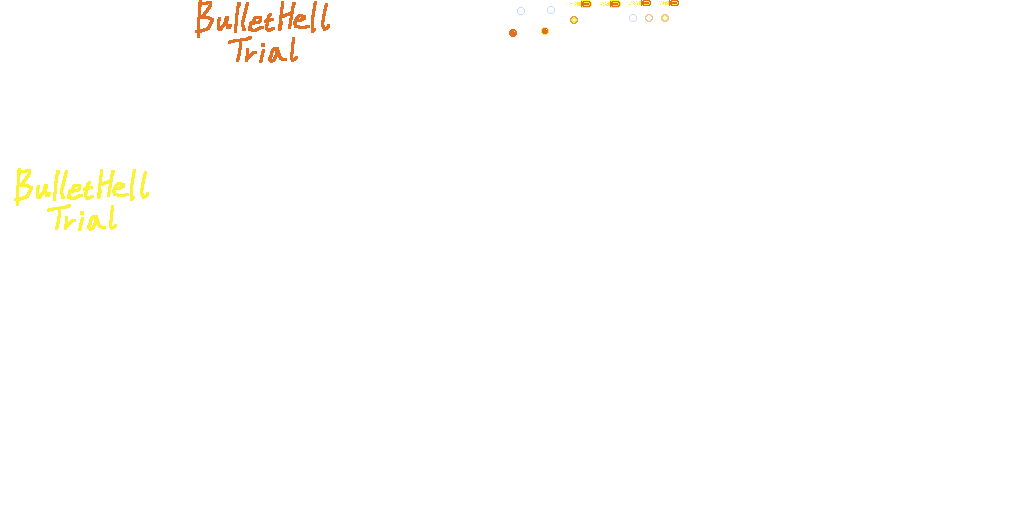 BulletHell
Trial
BulletHell
Trial